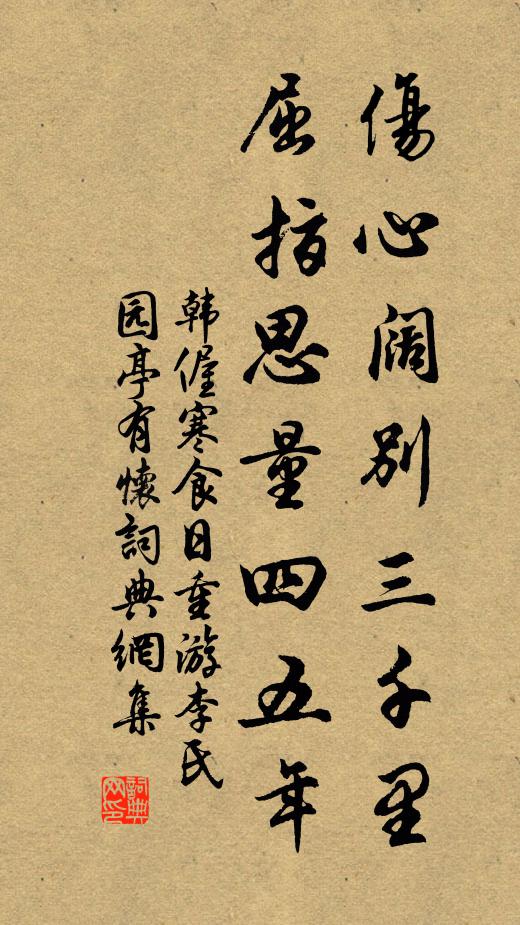 傷心阔别三千里
屈指思量四五年
韩偓寒食日重游李氏
园亭有懷詞典網集
詞典
网印